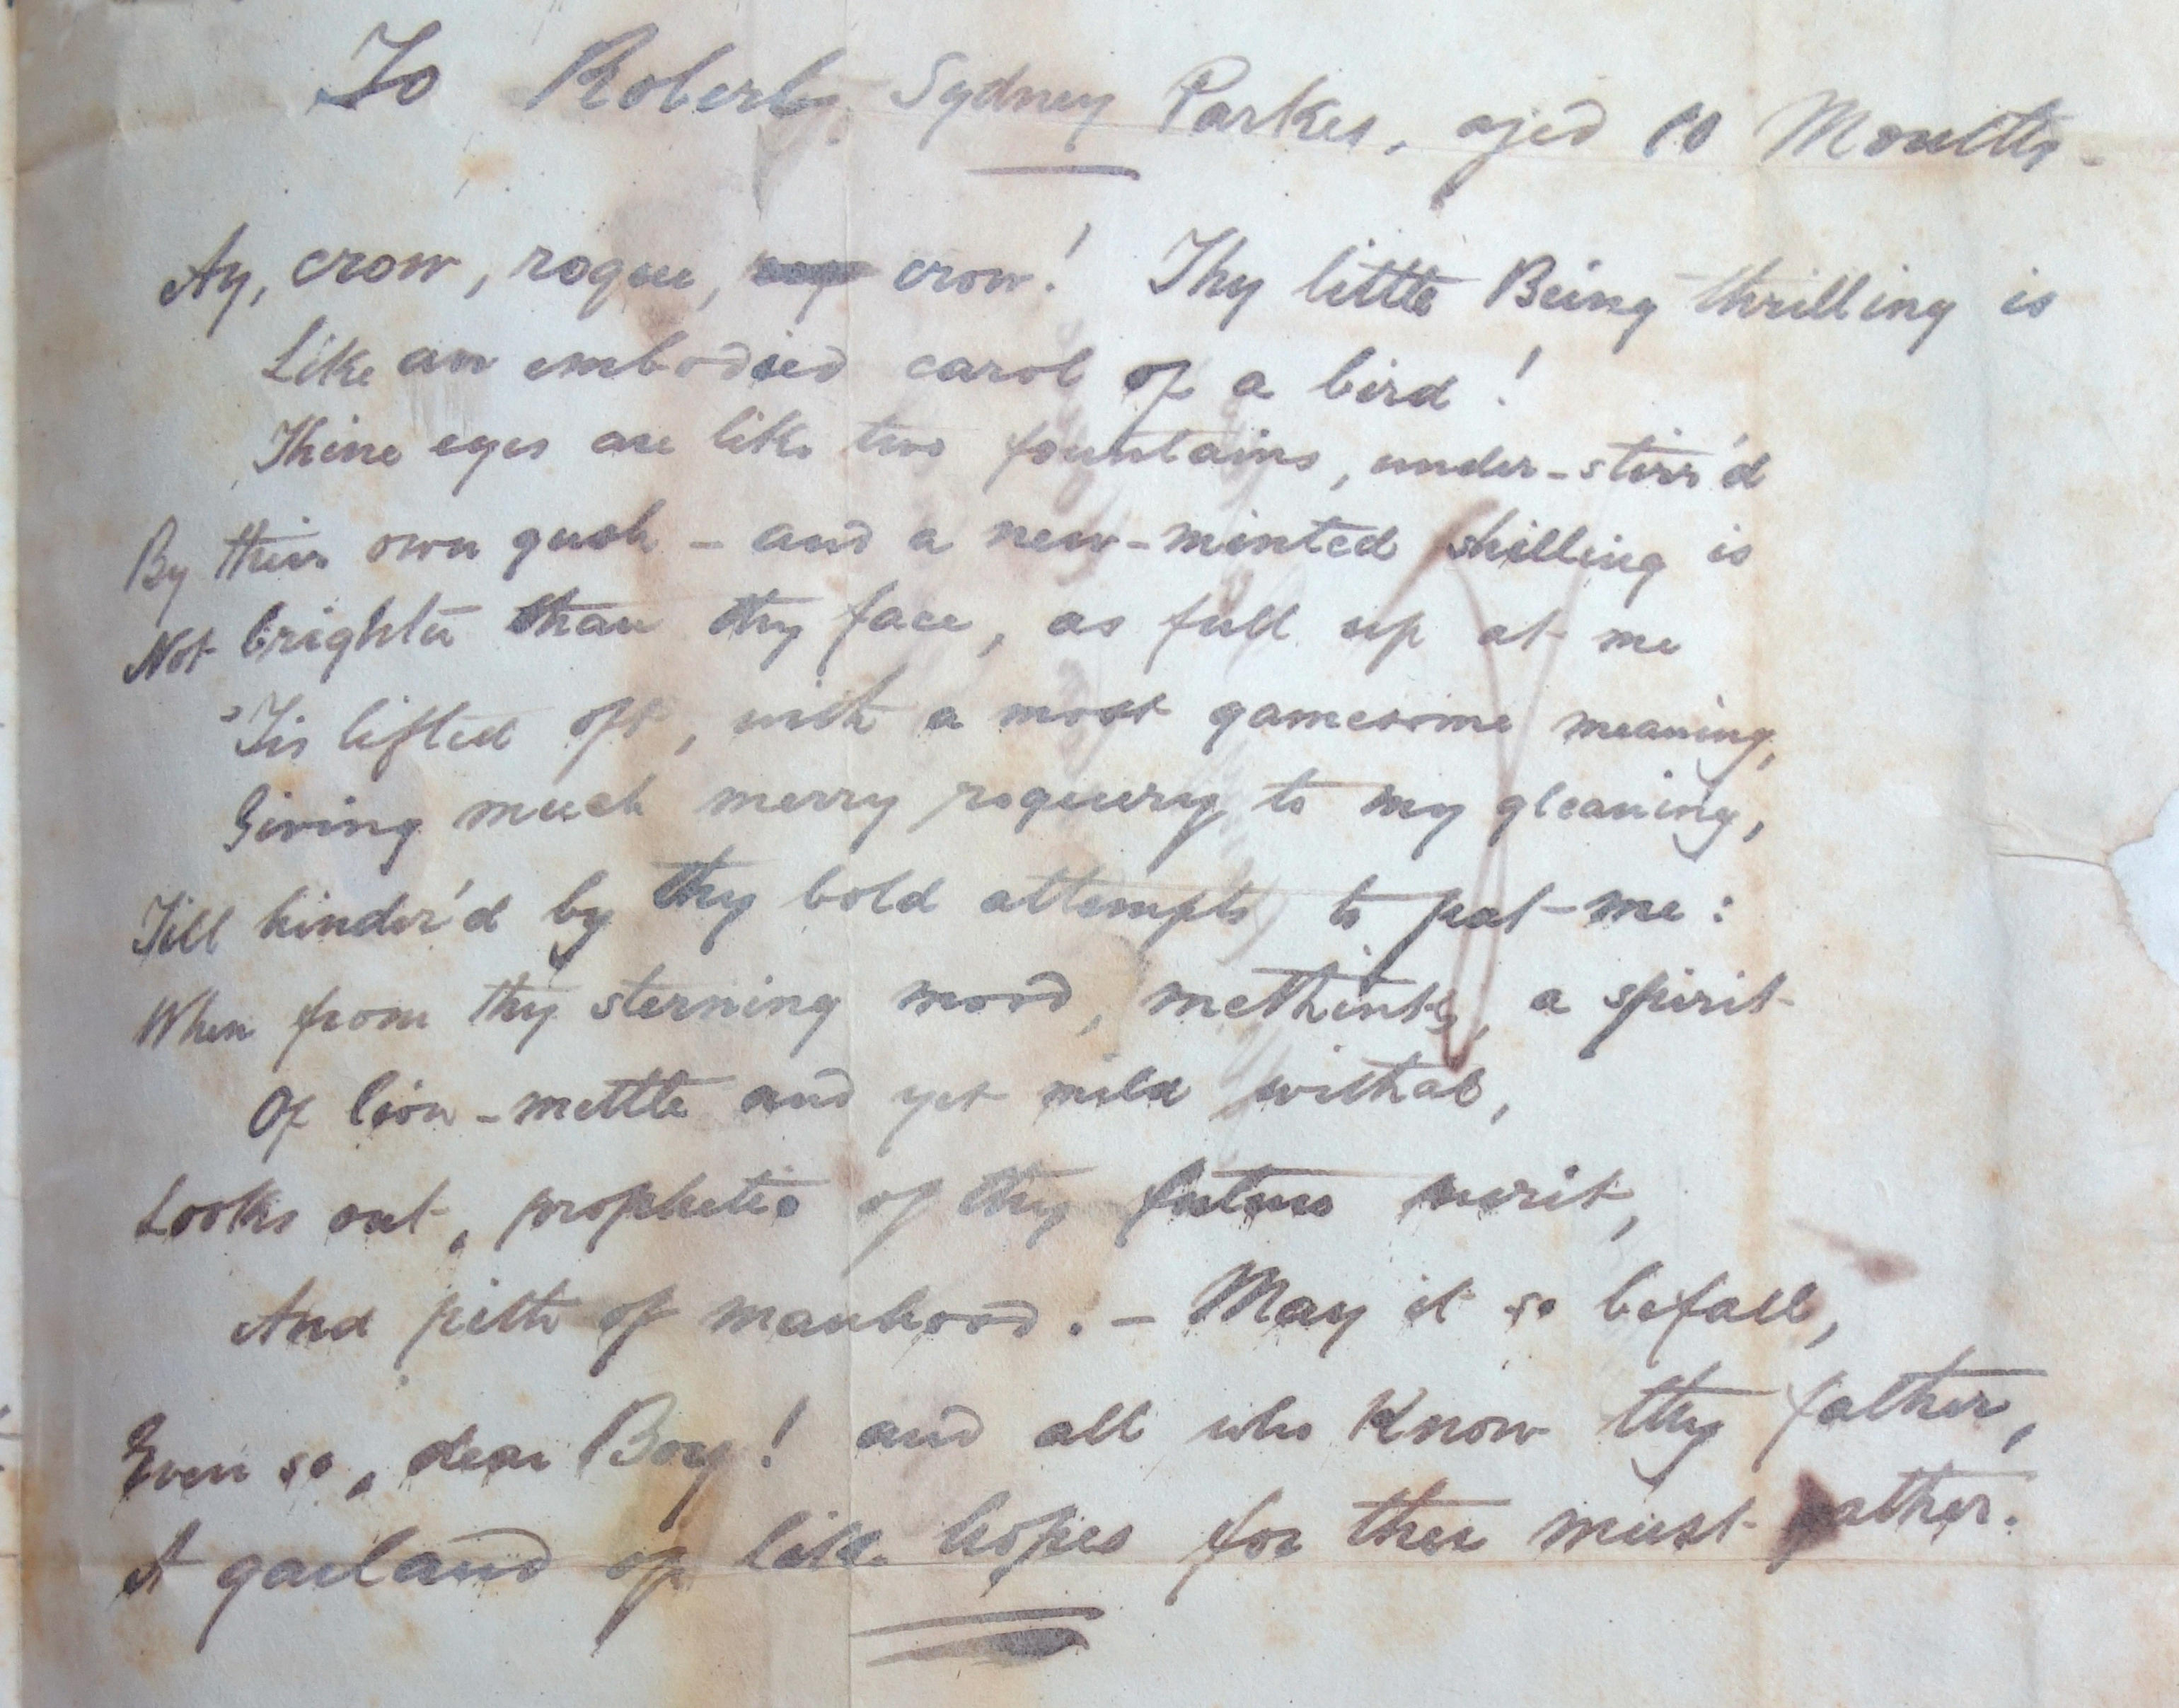 To Robert Sydney Parkes, aged 10 Months -
Ay, crow, rogue, crow! Thy little Being thrilling is
Like an embodied carol of a bird!
Thine eyes are like two fountains, under-stirr'd
By their own gush - and a new-minted shilling is
Not brighter than thy face, as full up at me
'Tis lifted oft, with a most gamesome meaning,
Giving much merry roguery to my gleaning,
Till hinder'd by thy bold attempts to pat-me:
When from thy sterning mood, methinks, a spirit
Of lion-mettle and yet mild withal,
Looks out, prophetic of thy future merit,
And pith of manhood. - May it so befall,
Even so, dear Boy! and all who Know thy father,
A garland of like hopes for thee must gather.